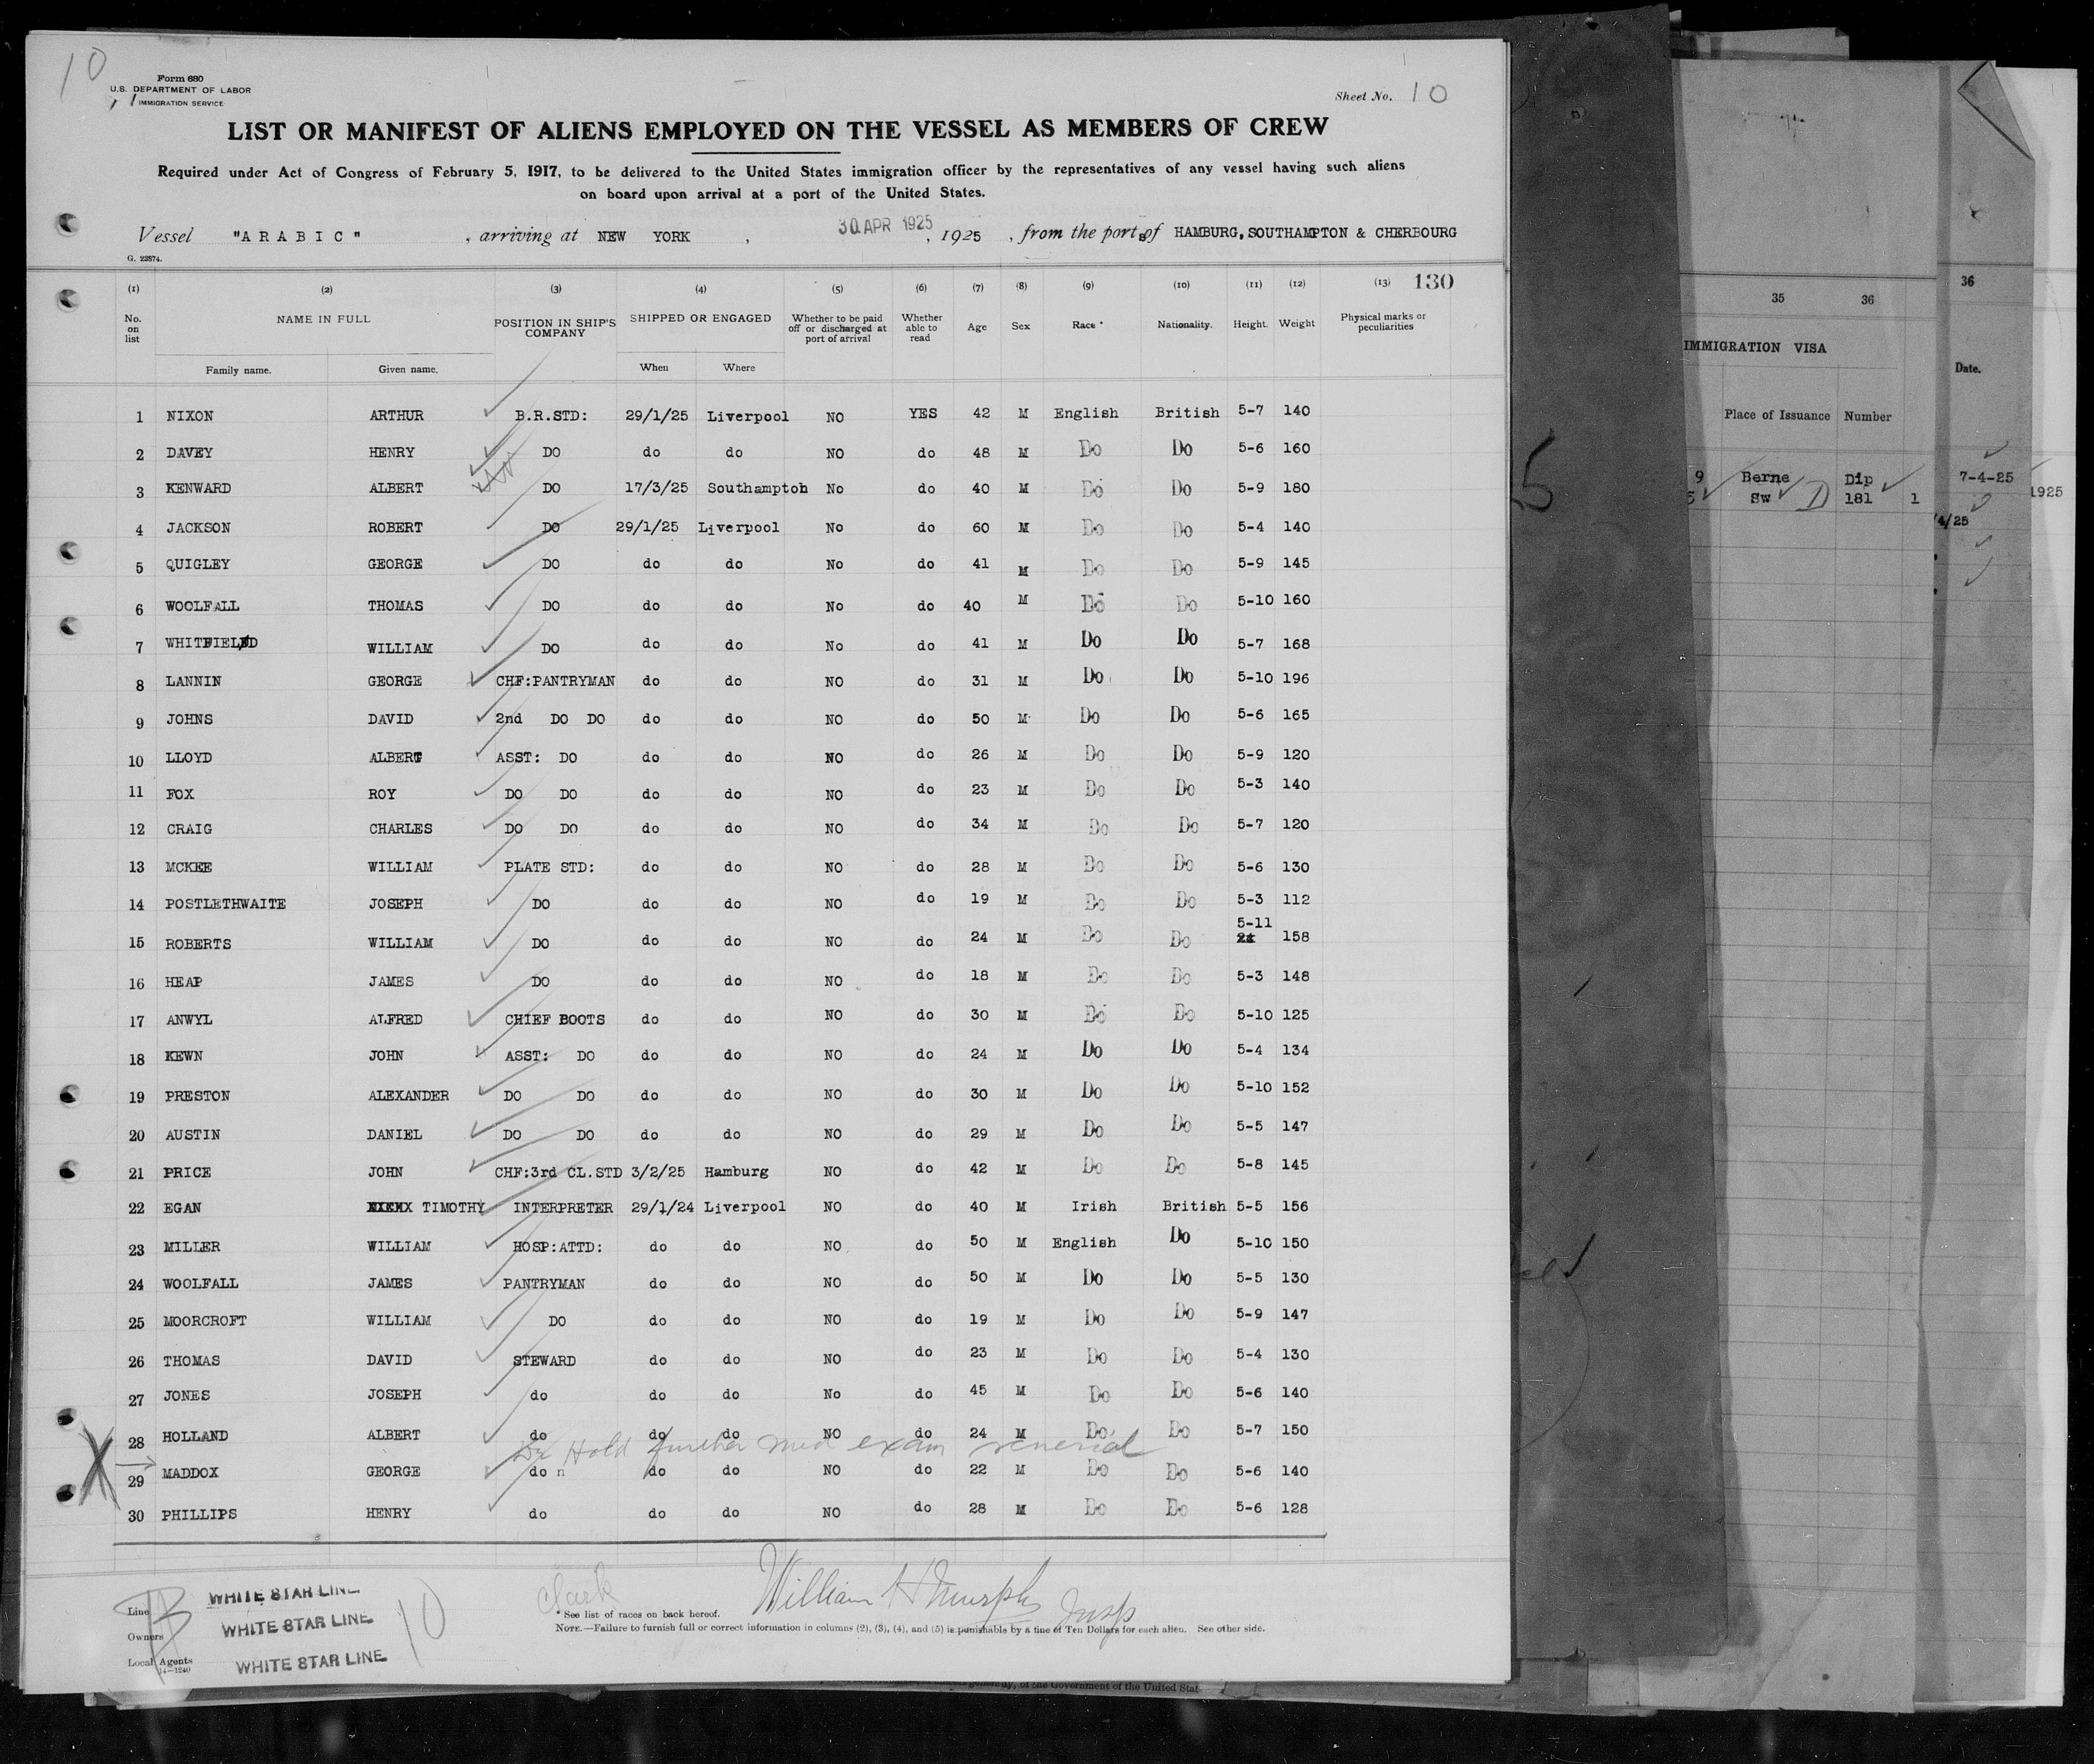 10
Form 680
U.S. DEPARTMENT OF LABOR
IMMIGRATION SERVICE
Sheet No. 10
LIST OR MANIFEST OF ALIENS EMPLOYED ON THE VESSEL AS MEMBERS OF CREW
Required under Act of Congress of February 5, 1917, to be delivered to the United States immigration officer by the representatives of any vessel having such aliens
on board upon arrival at a port of the United States.
Vessel "ARABIC", arriving at NEW YORK, 30 APR 1925, 1925, from the ports of HAMBURG, SOUTHAMPTON & CHERBOURG
G. 23874.
(1) (2) (3) (4) (5) (6) (7) (8) (9) (10) (11) (12) (13) 130
No. on list NAME IN FULL POSITION IN SHIP'S COMPANY SHIPPED OR ENGAGED Whether to be paid off or discharged at port of arrival Whether able to read Age Sex Race * Nationality. Height. Weight Physical marks or peculiarities
Family name. Given name. When Where
1 NIXON ARTHUR B.R.STD: 29/1/25 Liverpool NO YES 42 M English British 5-7 140
2 DAVEY HENRY DO do do NO do 48 M Do Do 5-6 160
3 KENWARD ALBERT DO 17/3/25 Southampton No do 40 M Do Do 5-9 180
4 JACKSON ROBERT DO 29/1/25 Liverpool No do 60 M Do Do 5-4 140
5 QUIGLEY GEORGE DO do do No do 41 M Do Do 5-9 145
6 WOOLFALL THOMAS DO do do No do 40 M Do Do 5-10 160
7 WHITFIELD WILLIAM DO do do No do 41 M Do Do 5-7 168
8 LANNIN GEORGE CHF:PANTRYMAN do do NO do 31 M Do Do 5-10 196
9 JOHNS DAVID 2nd DO DO do do NO do 50 M Do Do 5-6 165
10 LLOYD ALBERT ASST: DO do do NO do 26 M Do Do 5-9 120
11 FOX ROY DO DO do do NO do 23 M Do Do 5-3 140
12 CRAIG CHARLES DO DO do do NO do 34 M Do Do 5-7 120
13 MCKEE WILLIAM PLATE STD: do do NO do 28 M Do Do 5-6 130
14 POSTLETHWAITE JOSEPH DO do do NO do 19 M Do Do 5-3 112
15 ROBERTS WILLIAM DO do do NO do 24 M Do Do 5-11 158
16 HEAP JAMES DO do do NO do 18 M Do Do 5-3 148
17 ANWYL ALFRED CHIEF BOOTS do do NO do 30 M Do Do 5-10 125
18 KEWN JOHN ASST: DO do do NO do 24 M Do Do 5-4 134
19 PRESTON ALEXANDER DO DO do do NO do 30 M Do Do 5-10 152
20 AUSTIN DANIEL DO DO do do NO do 29 M Do Do 5-5 147
21 PRICE JOHN CHF:3rd CL.STD 3/2/25 Hamburg NO do 42 M Do Do 5-8 145
22 EGAN TIMOTHY INTERPRETER 29/1/24 Liverpool NO do 40 M Irish British 5-5 156
23 MILLER WILLIAM HOSP:ATTD: do do NO do 50 M English Do 5-10 150
24 WOOLFALL JAMES PANTRYMAN do do NO do 50 M Do Do 5-5 130
25 MOORCROFT WILLIAM DO do do NO do 19 M Do Do 5-9 147
26 THOMAS DAVID STEWARD do do NO do 23 M Do Do 5-4 130
27 JONES JOSEPH do do do No do 45 M Do Do 5-6 140
28 HOLLAND ALBERT do do do NO do 24 M Do Do 5-7 150
Hold further med exam venerial
29 MADDOX GEORGE do n do do NO do 22 M Do Do 5-6 140
30 PHILLIPS HENRY do do do NO do 28 M Do Do 5-6 128
Clark
William H Murphy Insp
* See list of races on back hereof.
NOTE.—Failure to furnish full or correct information in columns (2), (3), (4), and (5) is punishable by a fine of Ten Dollars for each alien. See other side.
Line WHITE STAR LINE
Owners WHITE STAR LINE
Local Agents WHITE STAR LINE
14—1240
10
of the Government of the United Stat
35 36
IMMIGRATION VISA
Place of Issuance Number
9 Berne Dip
Sw D 181 1
36
Date.
7-4-25
/4/25
1925